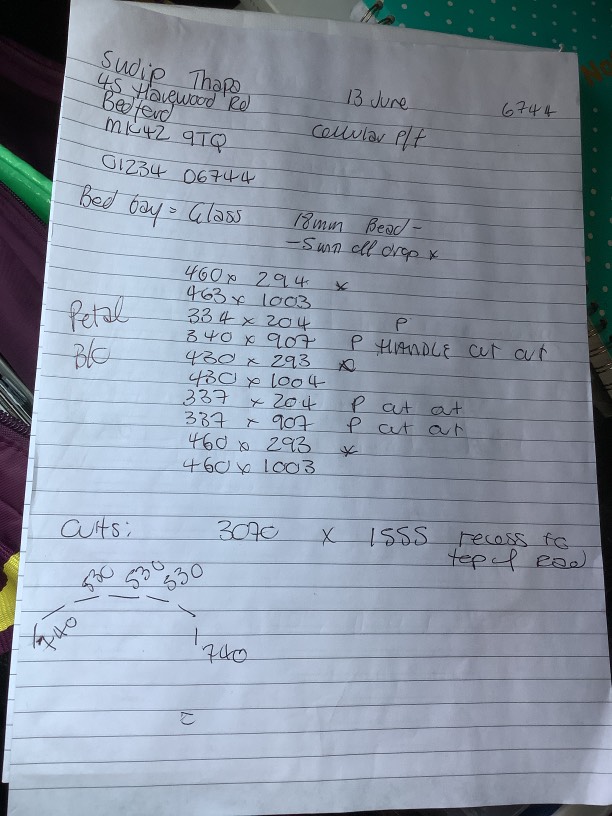 Sudip Thapa
45 Harewood Rd
Bedford
MK42 9TQ
13 June
6744
Cellular P/f
01234 06744
Bed bay = Glass
18mm Bead -
- 5mm all drop x
460 x 294 *
463 x 1003
334 x 204 P
Petal
340 x 907 P HANDLE cut out
B/C
430 x 293
430 x 1004
337 x 204 P cut out
337 x 907 P cut out
460 x 293 *
460 x 1003
3070 x 1555 recess to
top of
530 530 530
740
740